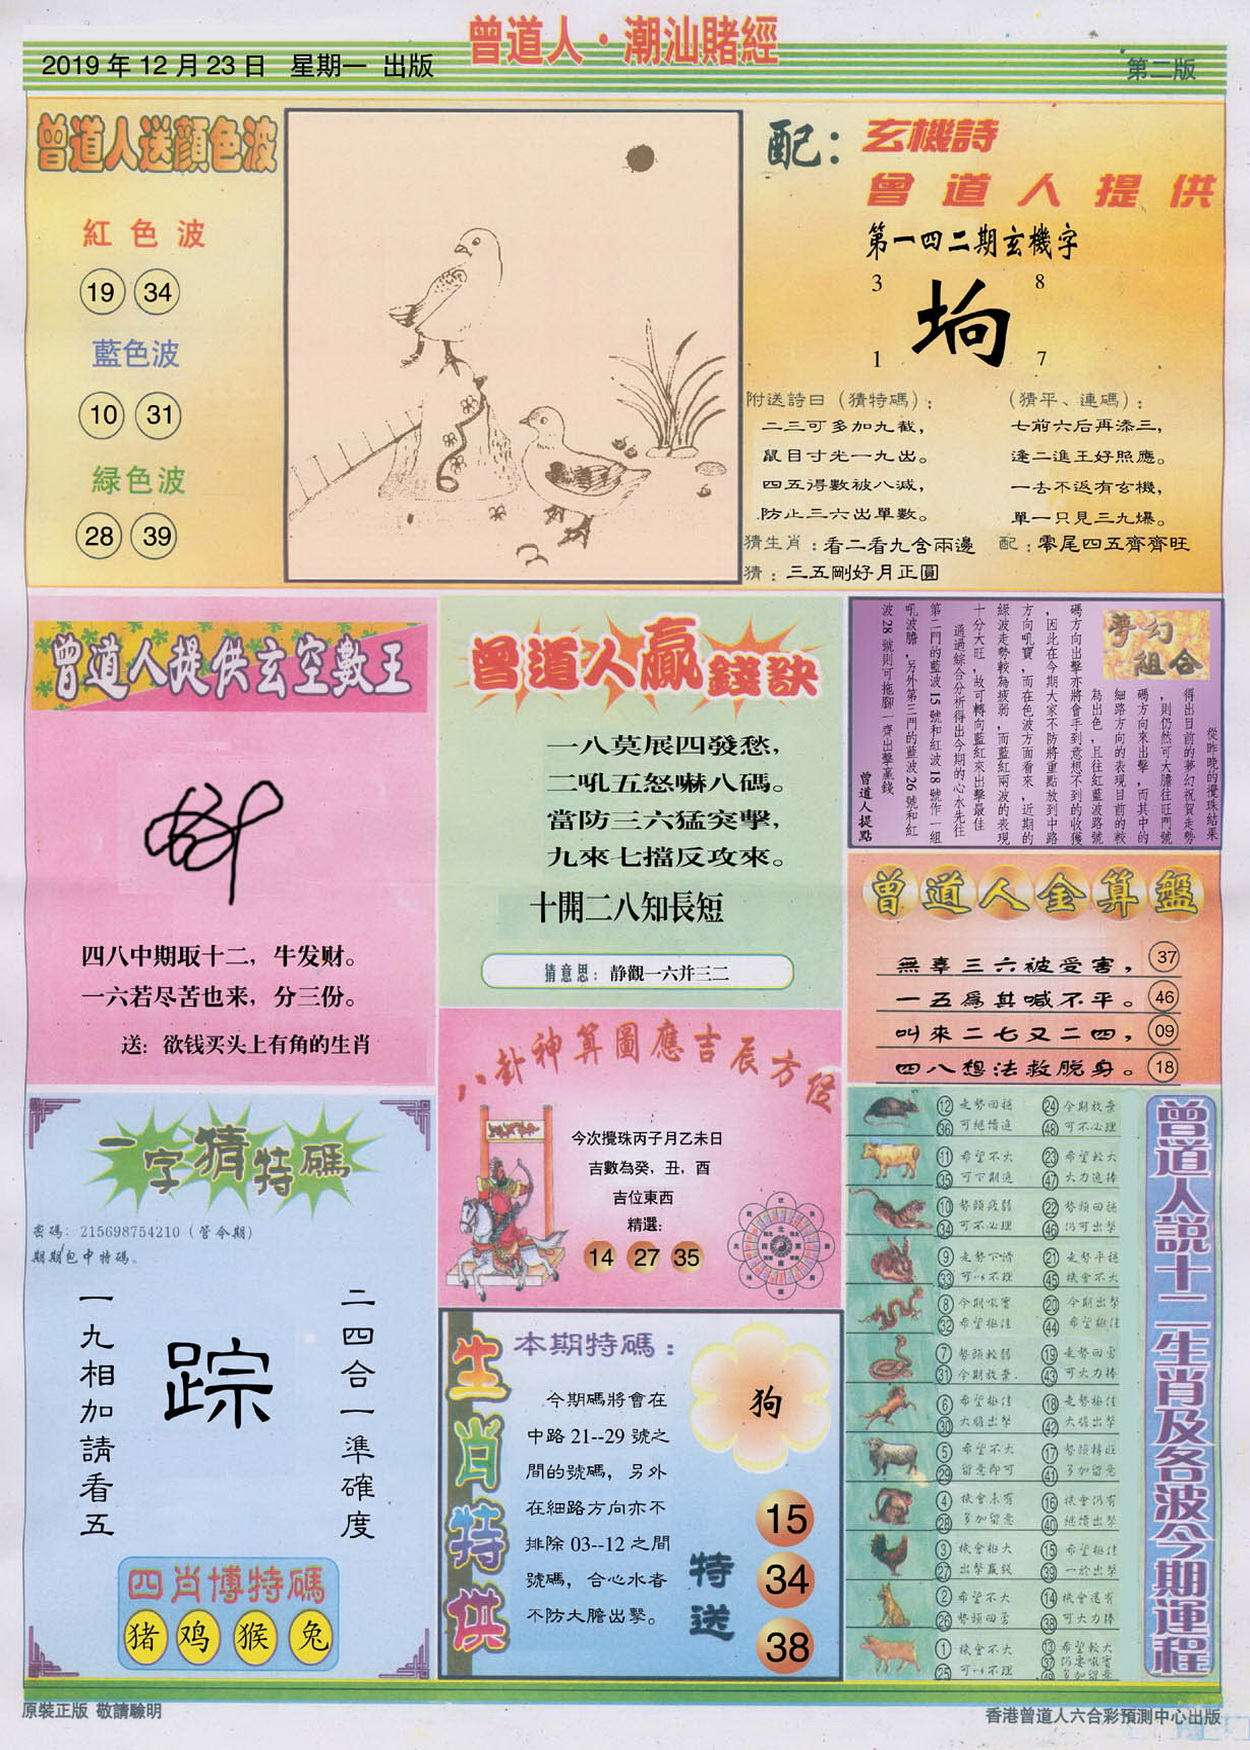 曾道人·潮汕賭經
2019年12月23日 星期一 出版
第二版
曾道人送顔色波
紅色波
19 34
藍色波
10 31
緑色波
28 39
配：玄機詩
曾道人提供
第一四二期玄機字
3 8
坰
1 7
附送詩日（猜特碼）：
二三可多加九截，
鼠目寸光一九出。
四五得數被八减，
防止三六出單數。
（猜平、連碼）：
七前六后再添三，
逢二進王好照應。
一去不返有玄機，
單一只見三九爆。
猜生肖：看二看九含兩邊 配：零尾四五齊齊旺
猜：三五剛好月正圓
曾道人提供玄空數王
四八中期取十二，牛发财。
一六若尽苦也来，分三份。
送：欲钱买头上有角的生肖
曾道人贏錢訣
一八莫展四發愁，
二吼五怒嚇八碼。
當防三六猛突擊，
九來七擋反攻來。
十開二八知長短
猜意思：静觀一六并三二
夢幻組合
從昨晚的攪珠結果
得出目前的夢幻祝賀走勢
，則仍然可大膽往旺門號
碼方向來出擊，而其中的
細路方向的表現目前的較
為出色，且往紅藍波路號
碼方向出擊亦將會手到意想不到的收獲
，因此在今期大家不防將重點放到中路
方向吼寶，而在色波方面看來，近期的
綠波走勢較為疲弱，而藍紅兩波的表現
十分大旺，故可轉向藍紅來出擊最佳
通過綜合分析得出今期的心水先往
第二門的藍波15號和紅波18號作一組
吼波膽，另外第三門的藍波26號和紅
波28號則可拖腳一齊出擊贏錢
曾道人提點
曾道人金算盤
無辜三六被受害， 37
一五爲其喊不平。 46
叫來二七又二四， 09
四八想法救脱身。 18
八卦神算圖應吉辰方位
今次攪珠丙子月乙未日
吉數為癸，丑，酉
吉位東西
精選：
14 27 35
一字猜特碼
密碼：215698754210（管令期）
期期包中特碼。
一九相加請看五
踪
二四合一準確度
四肖博特碼
猪 鸡 猴 兔
生肖特供
本期特碼：
今期碼將會在
中路21--29號之
間的號碼，另外
在細路方向亦不
排除03--12之間
號碼，合心水者
不防大膽出擊。
狗
特送
15
34
38
曾道人説十二生肖及各波今期運程
12 走勢回穩 24 今期放棄
36 可繼續追 48 可不必理
11 希望不大 23 希望較大
35 可下期追 47 大力追捧
10 勢頭疲弱 22 勢頭回穩
34 可不必理 46 仍可出擊
9 走勢下滑 21 走勢平穩
33 可以不理 45 機會不大
8 今期吼寶 20 今期出擊
32 希望極佳 44 希望極佳
7 勢頭較弱 19 走勢回勇
31 今期放棄 43 可大力捧
6 希望極佳 18 走勢極佳
30 大膽出擊 42 大膽出擊
5 希望不大 17 勢頭轉旺
29 留意即可 41 多加留意
4 機會未有 16 機會仍有
28 多加留意 40 繼續出擊
3 機會極大 15 希望極佳
27 出擊贏錢 39 一於出擊
2 希望不大 14 機會還有
26 勢頭回勇 38 可大力捧
1 機會不大 13 希望較大
25 可以不理 37 仍要吼寶
49 多加留意
原裝正版 敬請驗明
香港曾道人六合彩預測中心出版